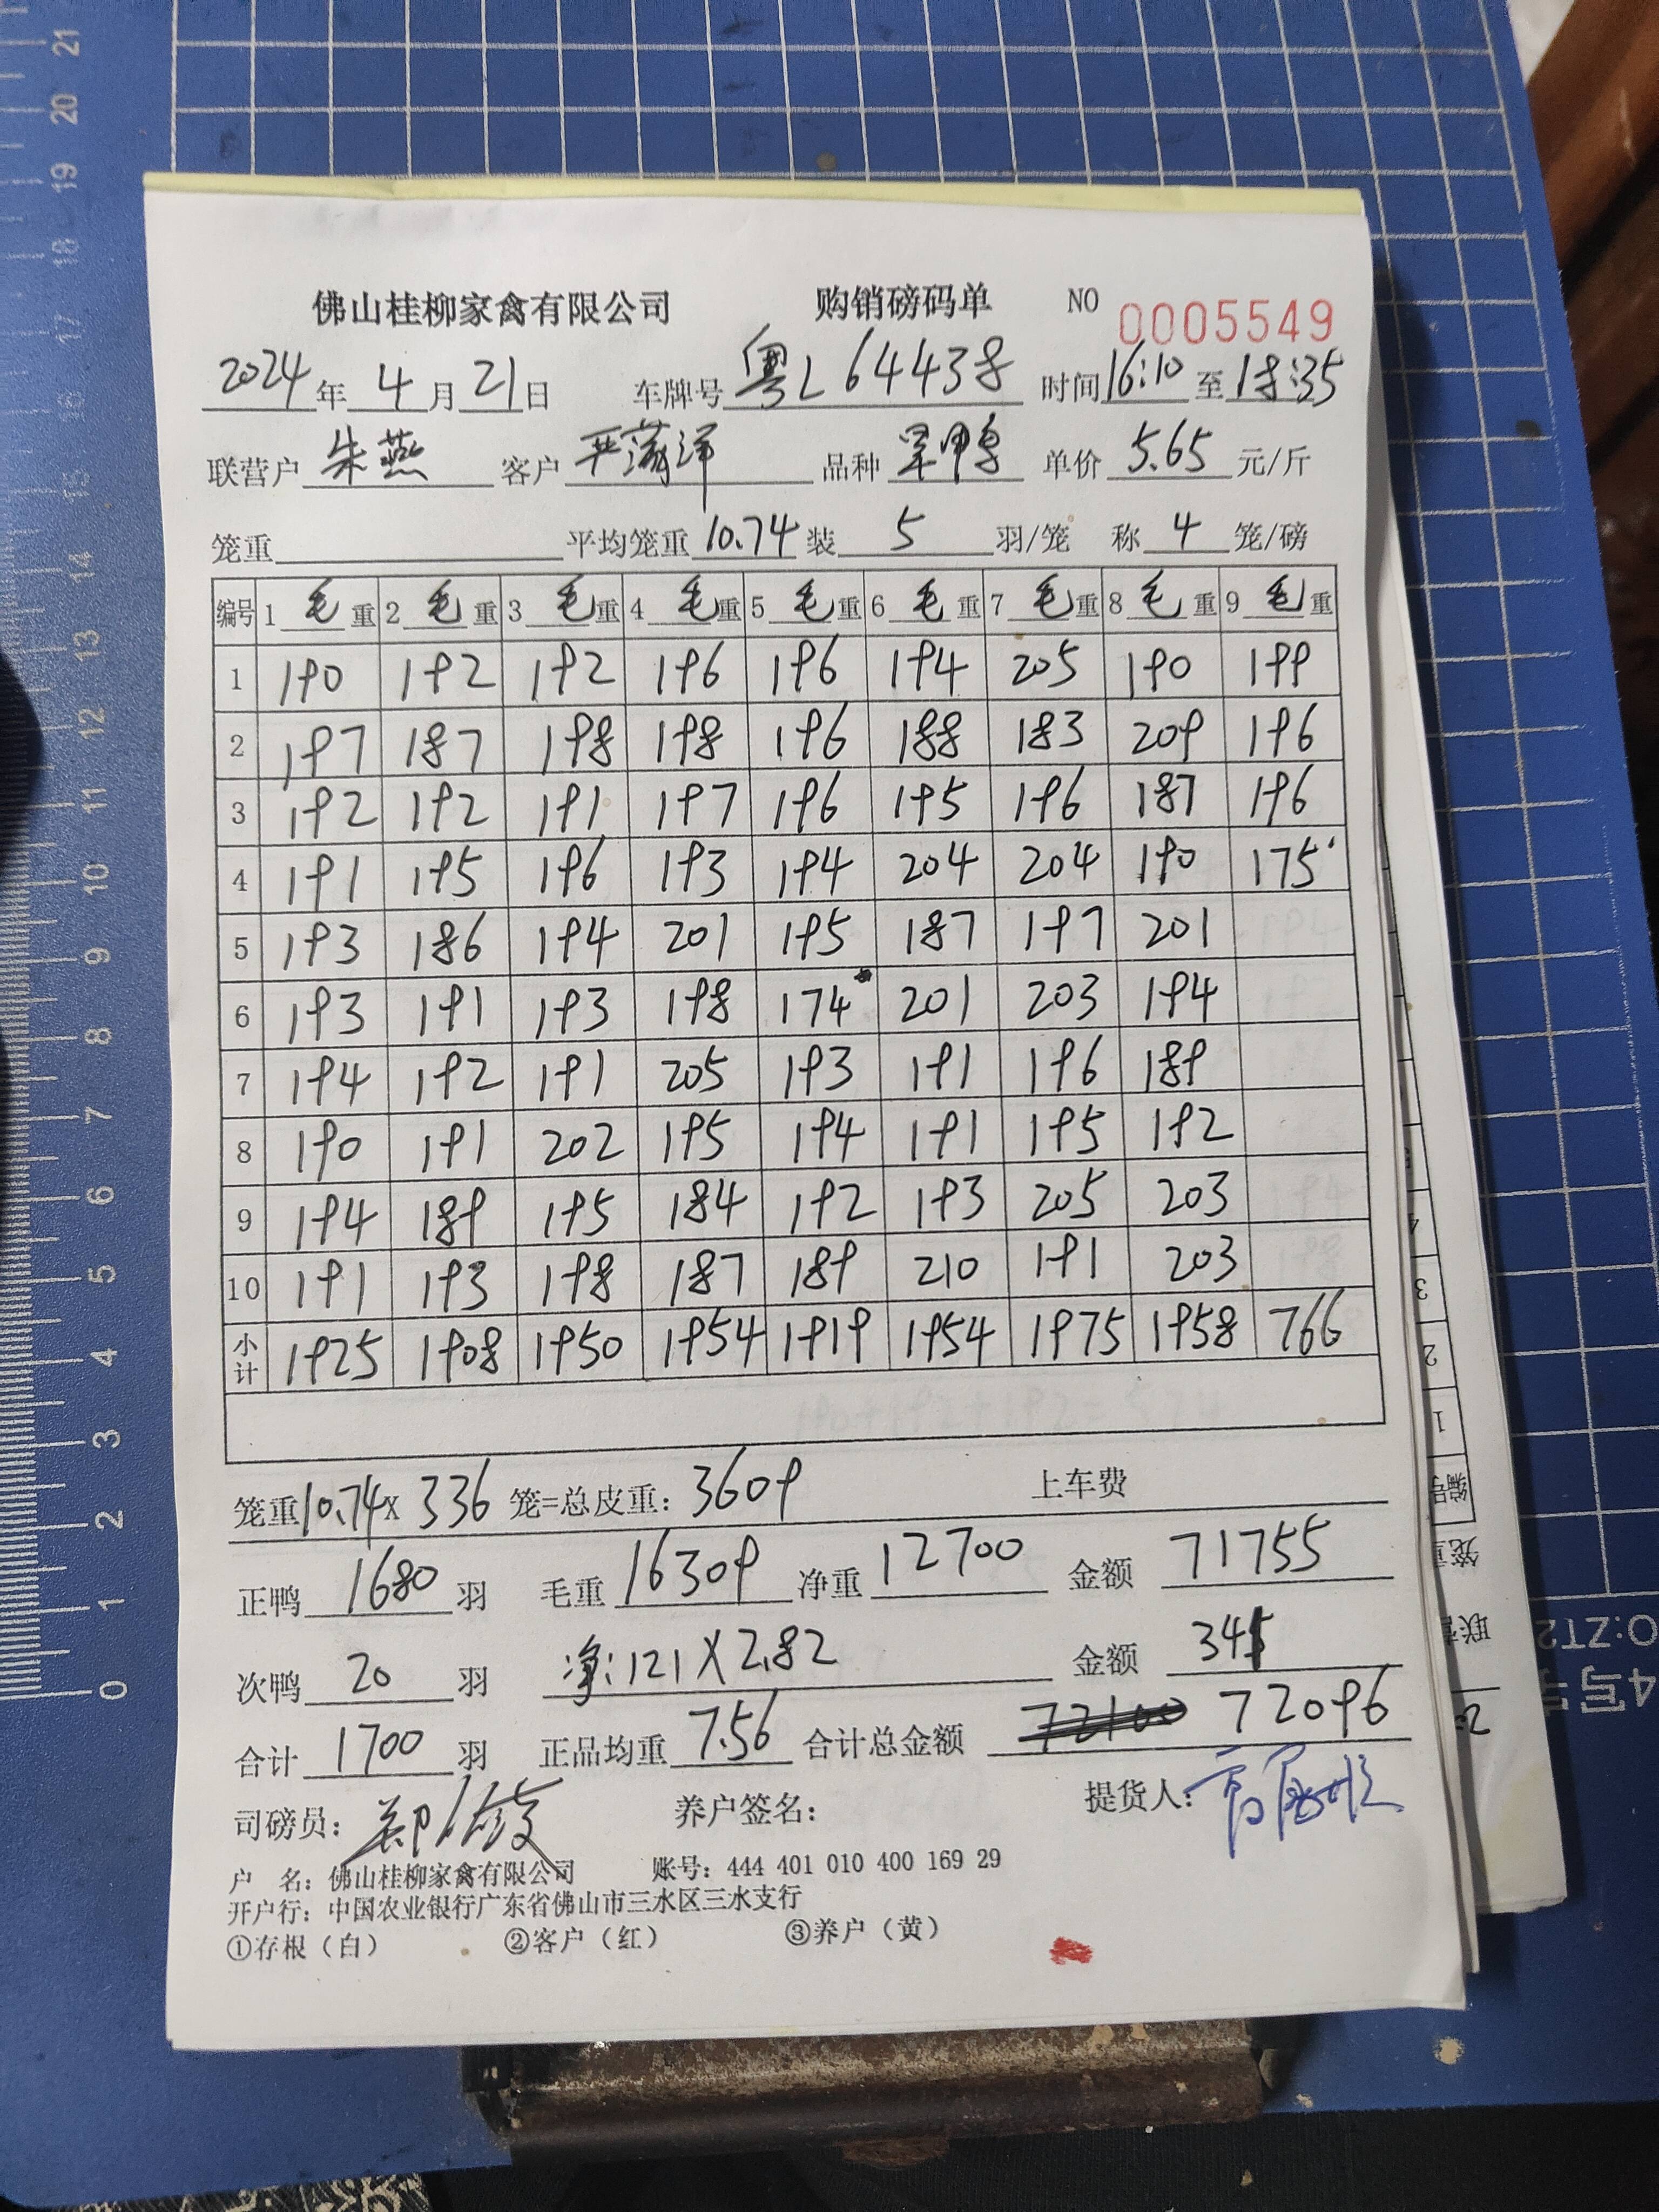 佛山桂柳家禽有限公司 购销磅码单 NO 0005549
2024年4月21日 车牌号粤L64438 时间16:10至18:35
联营户朱燕 客户严 品种旱鸭 单价5.65元/斤
笼重 平均笼重10.74装5羽/笼 称4笼/磅
编号 1毛重 2毛重 3毛重 4毛重 5毛重 6毛重 7毛重 8毛重 9毛重
1 190 192 192 196 196 194 205 190 199
2 197 187 198 198 196 188 183 209 196
3 192 192 191 197 196 195 196 187 196
4 191 195 196 193 194 204 204 190 175
5 193 186 194 201 195 187 197 201
6 193 191 193 198 174 201 203 194
7 194 192 191 205 193 191 196 189
8 190 191 202 195 194 191 195 192
9 194 189 195 184 192 193 205 203
10 191 193 198 187 189 210 191 203
小计 1925 1908 1950 1954 1919 1954 1975 1958 766
笼重10.74X336笼=总皮重:3609 上车费
正鸭1680羽 毛重16309 净重12700 金额71755
次鸭20羽 净:121X2.82 金额
合计1700羽 正品均重7.56 合计总金额 72100 72096
司磅员:郑 养户签名: 提货人:
户 名:佛山桂柳家禽有限公司 账号:444 401 010 400 169 29
开户行:中国农业银行广东省佛山市三水区三水支行
①存根(白) ②客户(红) ③养户(黄)
21
20
19
18
17
16
15
14
13
12
11
10
9
8
7
6
5
4
3
2
1
0